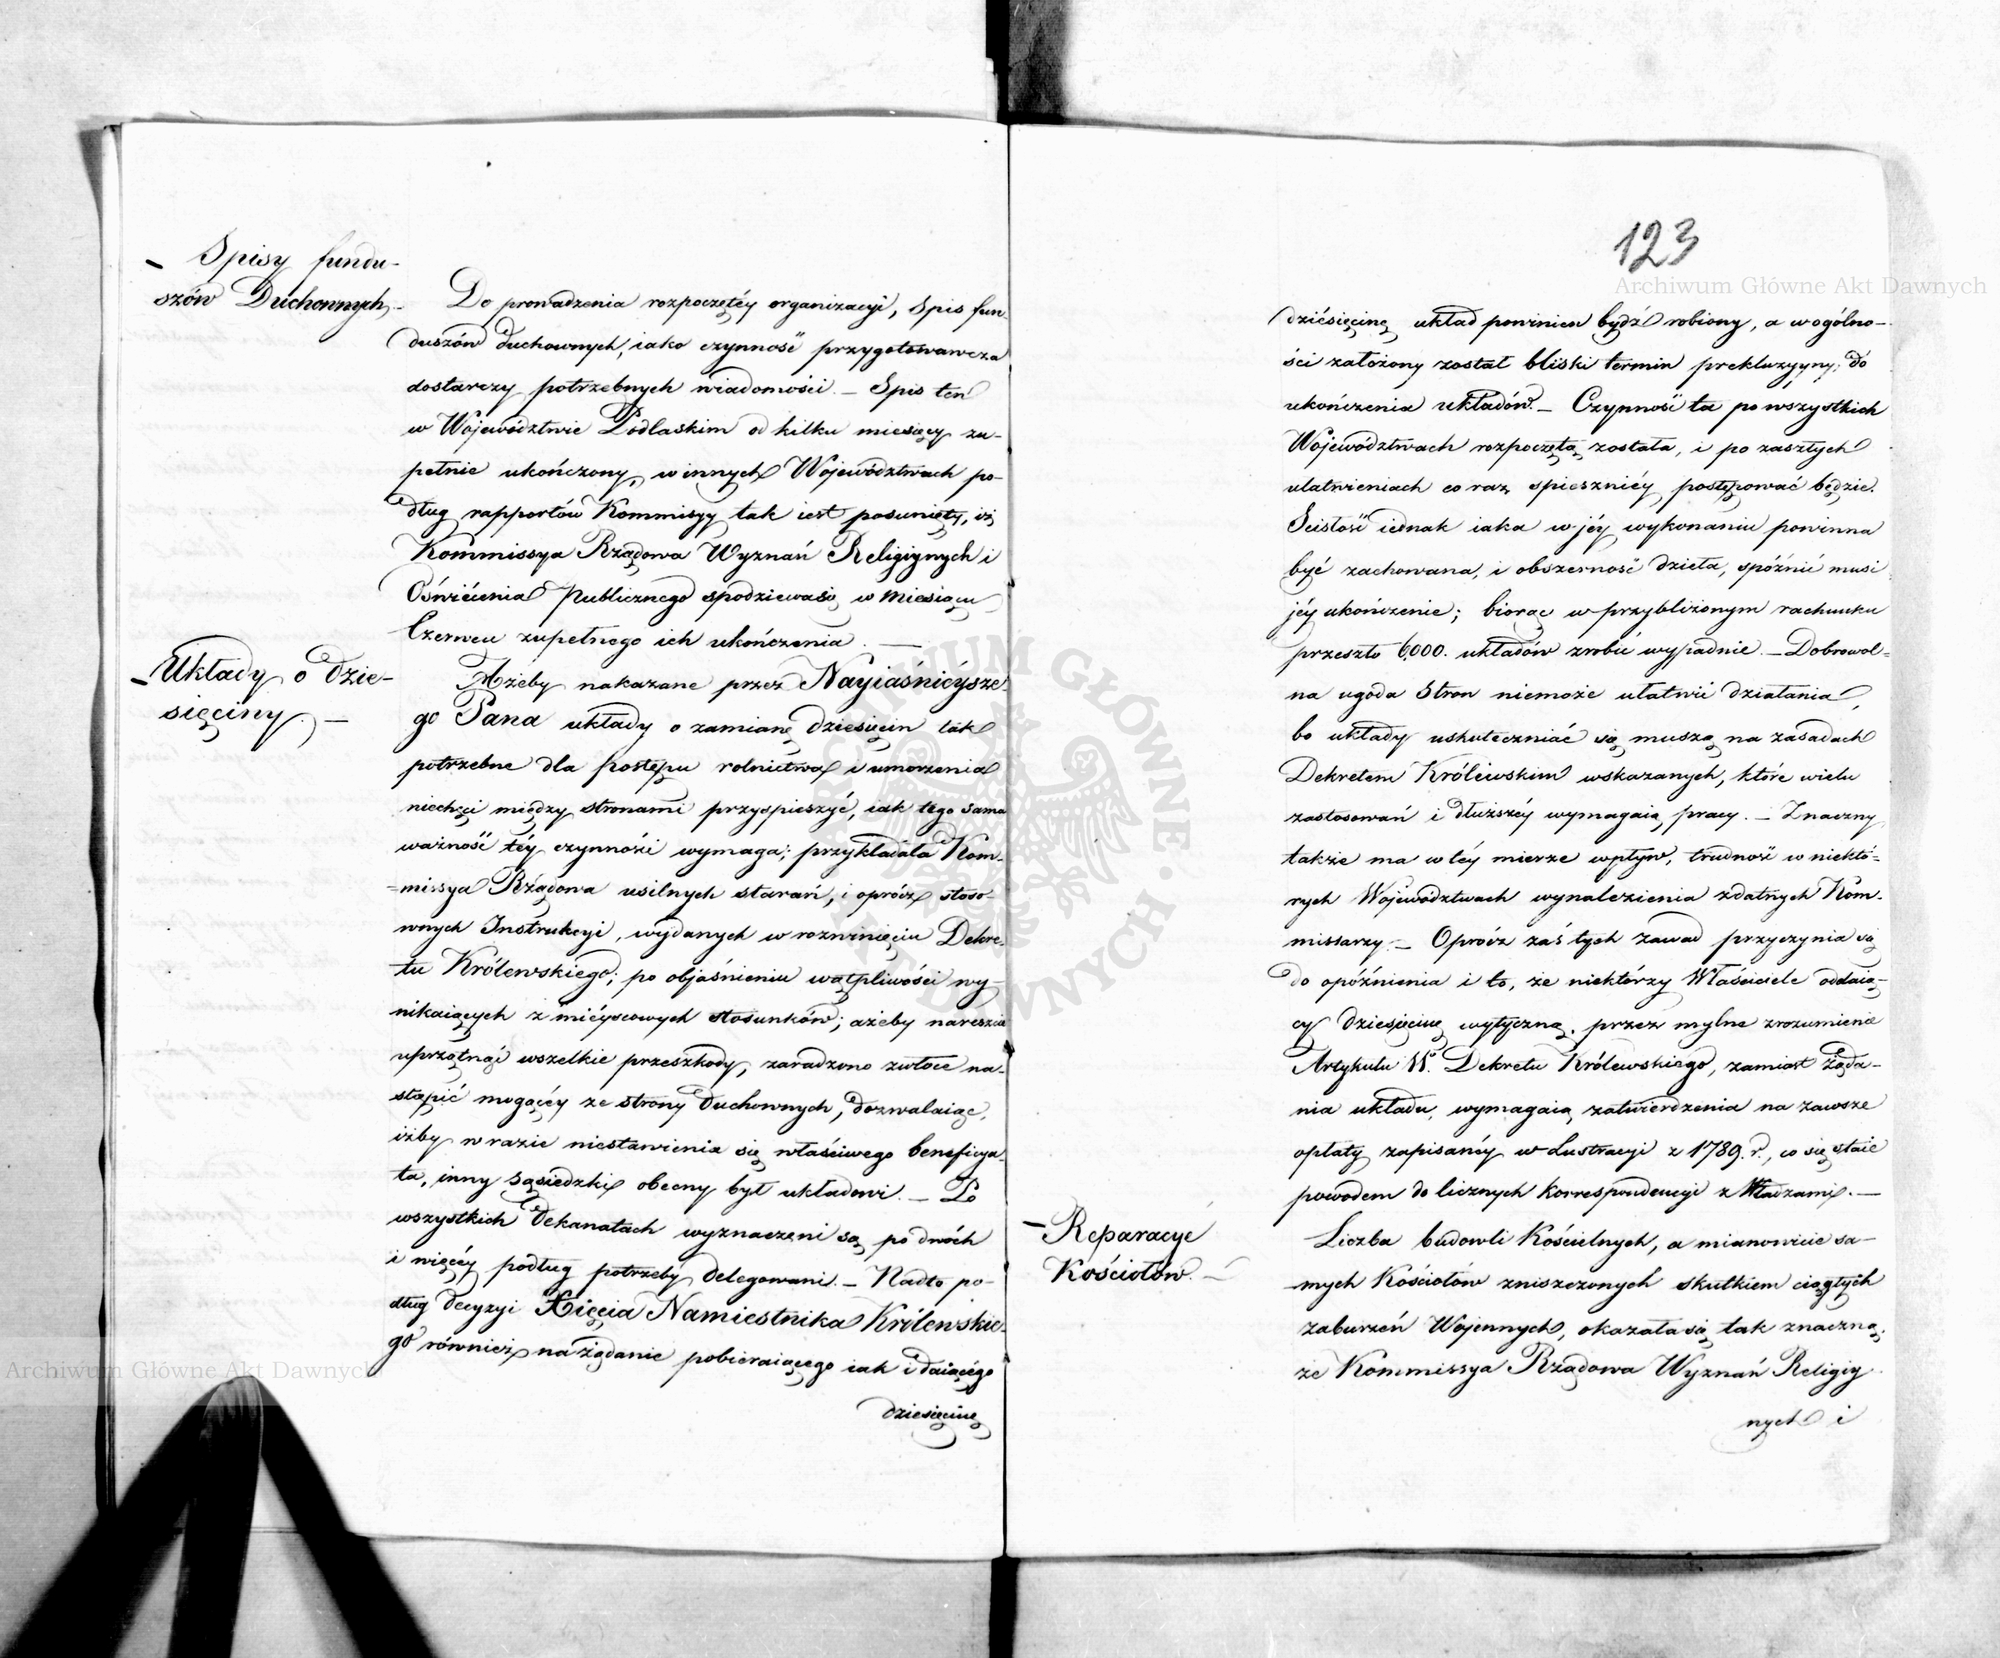 Spisy fundu-
szów Duchownych,
Do prowadzenia rozpoczętéy organizacyi, Spis fun-
duszów duchownych, iako czynność przygotowawcza
dostarczy potrzebnych wiadomości. — Spis ten
w Województwie Podlaskim od kilku miesięcy zu-
pełnie ukończony, w innych Województwach po-
dług rapportów Kommissyy tak iest posunięty, iż
Kommissya Rządowa Wyznań Religiynych i
Oświécenia Publicznego spodziewa się w Miesiącu
Czerwcu zupełnego ich ukończenia. —
Układy o dzie-
sięciny. —
Ażeby nakazane przez Nayiaśnieysze-
go Pana układy o zamianę dziesięcin tak
potrzebne dla postępu rolnictwa i umorzenia
niechęci między stronami przyspieszyć, iak tego sama
ważność téy czynności wymaga; przykładała Kom-
=missya Rządowa usilnych starań, i oprócz stoso-
wnych Instrukcyi, wydanych w rozwinięciu Dekre-
tu Królewskiego; po objaśnieniu wątpliwości wy-
nikaiących z mieyscowych stosunków; ażeby nareszcie
uprzątnąć wszelkie przeszkody, zaradzono zwłoce na-
stąpić mogącéy ze strony Duchownych, dozwalaiąc,
iżby w razie niestawienia się właściwego beneficya-
ta, inny sąsiedzki obecny był układowi. — Po
wszystkich Dekanatach wyznaczeni są po dwóch
i więcéy podług potrzeby delegowani. — Nadto po-
dług decyzyi Xięcia Namiestnika Królewskie-
go również na żądanie pobieraiącego iak i daiącego
dziesięcinę
123
dziésięcinę układ powinien bydź robiony, a w ogólno-
ści założony został bliski termin prekluzyyny, do
ukończenia układów. — Czynność ta po wszystkich
Województwach rozpoczętą została, i po zaszłych
ułatwieniach co raz spieszniéy postępować będzie.
Scisłość iednak iaka w jéy wykonaniu powinna
być zachowana, i obszerność dzieła, spóźnić musi
jéy ukończenie; biorąc w przybliżonym rachunku
przeszło 6,000. układów zrobić wypadnie. — Dobrowol=
na ugoda Stron niemoże ułatwić działania,
bo układy uskuteczniać się muszą na zasadach
Dekretem Królewskim wskazanych, które wielu
zastosowań i dłuższéy wymagaią pracy. — Znaczny
także ma w téy mierze wpływ, trudność w niektó-
rych Województwach wynalezienia zdatnych Kom-
missarzy. — Oprócz zaś tych zawad przyczynia się
do opóźnienia i to, że niektórzy Właściciele oddaią-
cy dziesięcinę wytyczną, przez mylne zrozumienie
Artykułu Dekretu Królewskiego, zamiast żąda-
nia układu, wymagaią zatwierdzenia na zawsze
opłaty zapisanéy w Lustracyi z 1789. r., co się staie
powodem do licznych Korrespondencyi z Władzami. —
Reparacye
Kościołów. —
Liczba budowli Kościelnych, a mianowicie sa-
mych Kościołów zniszczonych skutkiem ciągłych
zaburzeń Wojennych, okazała się tak znaczną,
że Kommissya Rządowa Wyznań Religiy
nych i
Archiwum Główne Akt Dawnych
Archiwum Główne Akt Dawnych
ARCHIWUM GŁÓWNE AKT DAWNYCH